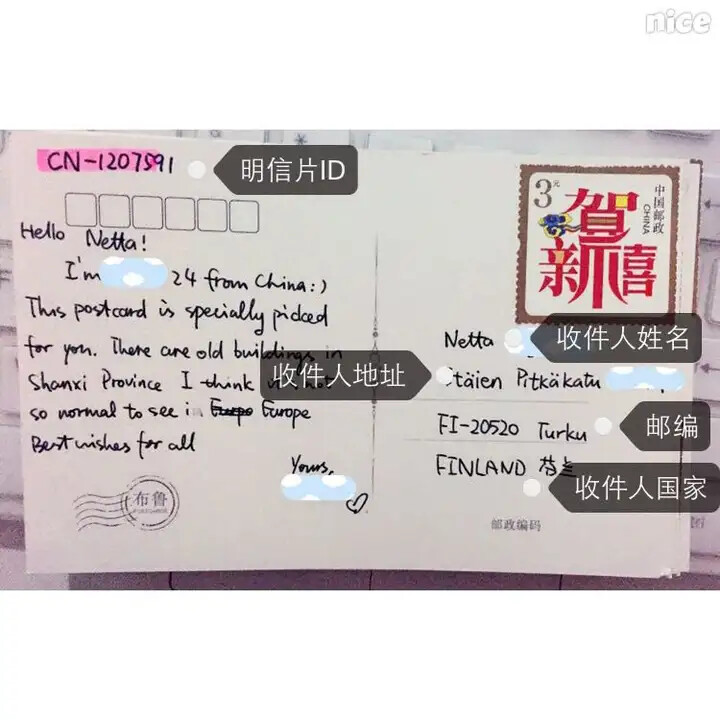 nice
CN-1207591
明信片ID
3元
中国邮政
CHINA
贺
新禧
Hello Netta!
I'm 24 from China:)
This postcard is specially picked
for you. There are old buildings in
Shanxi Province I think
so normal to see in Europe
Best wishes for all
Yours,
布鲁
Netta
收件人姓名
收件人地址
täien Pitkäkatu
FI-20520 Turku
邮编
FINLAND 芬兰
收件人国家
邮政编码